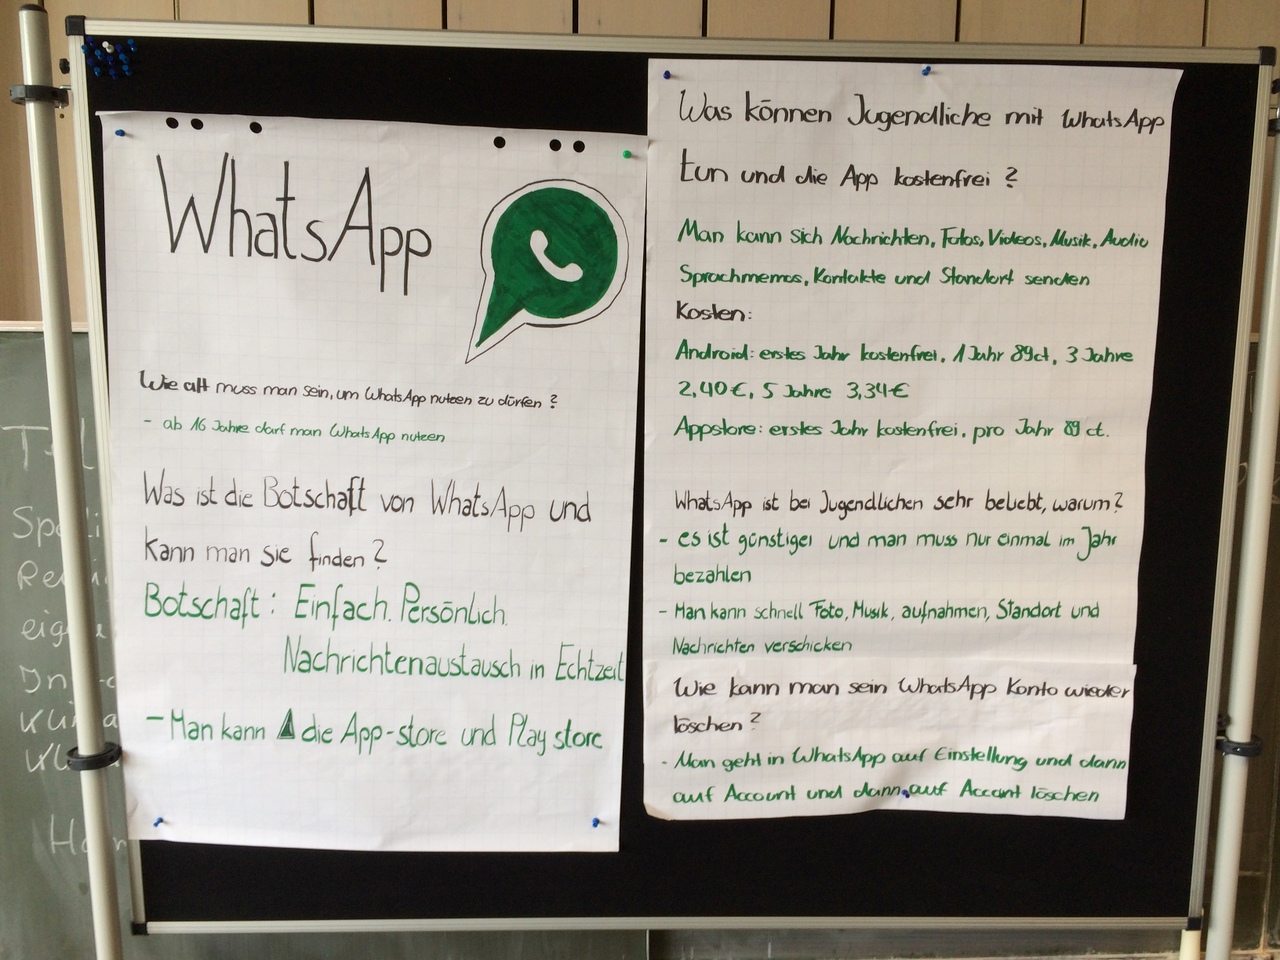 WhatsApp
Wie alt muss man sein, um WhatsApp nutzen zu dürfen?
- ab 16 Jahre darf man WhatsApp nutzen
Was ist die Botschaft von WhatsApp und
kann man sie finden?
Botschaft: Einfach. Persönlich.
Nachrichtenaustausch in Echtzeit
- Man kann die App-store und Play store
Was können Jugendliche mit WhatsApp
tun und die App kostenfrei?
Man kann sich Nachrichten, Fotos, Videos, Musik, Audio
Sprachmemos, Kontakte und Standort senden
Kosten:
Android: erstes Jahr kostenfrei, 1 Jahr 89ct, 3 Jahre
2,40€, 5 Jahre 3,34€
Appstore: erstes Jahr kostenfrei, pro Jahr 89 ct.
WhatsApp ist bei Jugendlichen sehr beliebt, warum?
- es ist günstiger und man muss nur einmal im Jahr
bezahlen
- Man kann schnell Foto, Musik, aufnahmen, Standort und
Nachrichten verschicken
Wie kann man sein WhatsApp Konto wieder
löschen?
- Man geht in WhatsApp auf Einstellung und dann
auf Account und dann auf Accont löschen